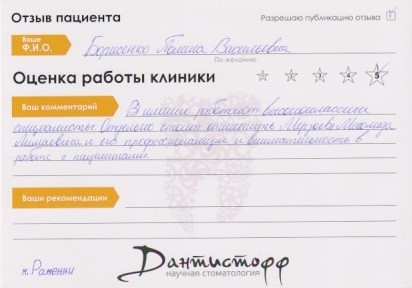 Отзыв пациента
Разрешаю публикацию отзыва
Ваше
Ф.И.О.
Борисенко Полина Васильевна
По желанию
Оценка работы клиники
1 2 3 4 5
Ваш комментарий
В клинике работают высококлассные
специалисты. Отдельно стоит отметить Мирзоева
и его профессионализм и внимательность в
работе с пациентами.
Ваши рекомендации
м. Раменки
Дантистофф
научная стоматология